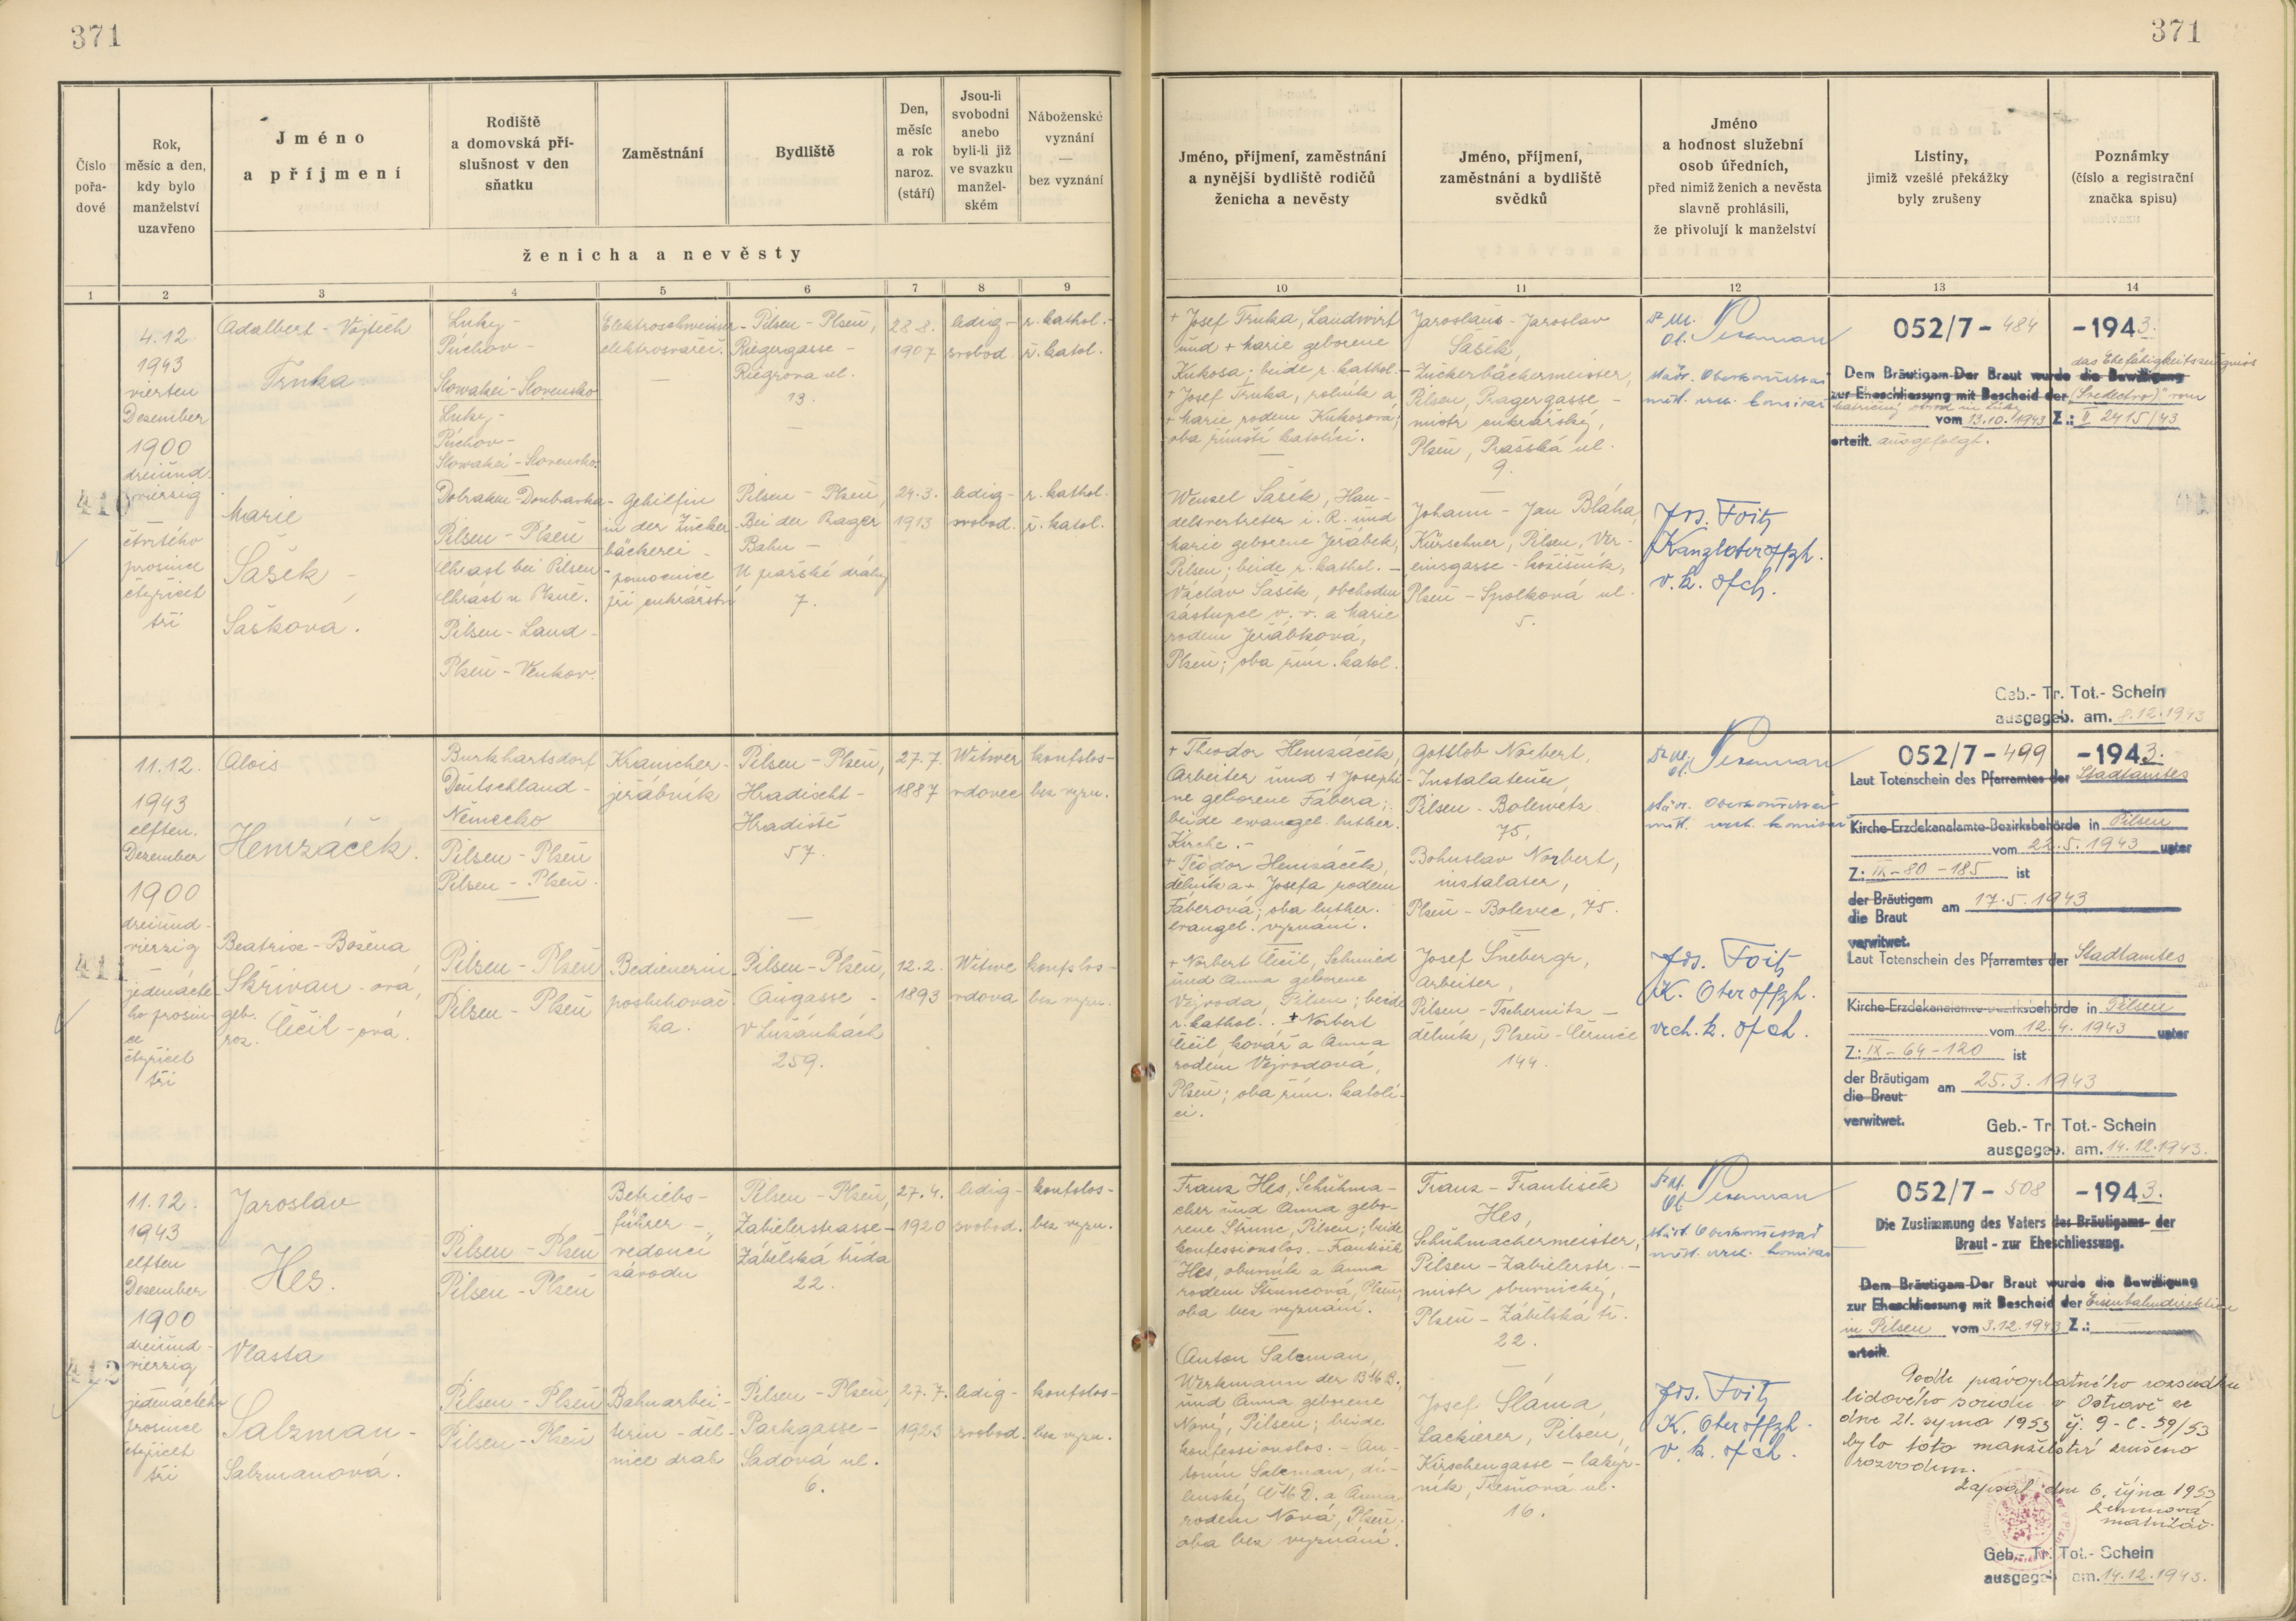 371
371
Číslo pořa- dové
Rok, měsíc a den, kdy bylo manželství uzavřeno
Jméno a příjmení
Rodiště a domovská pří- slušnost v den sňatku
Zaměstnání
Bydliště
Den, měsíc a rok naroz. (stáří)
Jsou-li svobodni anebo byli-li již ve svazku manžel- ském
Náboženské vyznání — bez vyznání
ženicha a nevěsty
Jméno, příjmení, zaměstnání a nynější bydliště rodičů ženicha a nevěsty
Jméno, příjmení, zaměstnání a bydliště svědků
Jméno a hodnost služební osob úředních, před nimiž ženich a nevěsta slavně prohlásili, že přivolují k manželství
Listiny, jimiž vzešlé překážky byly zrušeny
Poznámky (číslo a registrační značka spisu)
1 2 3 4 5 6 7 8 9 10 11 12 13 14
410
4.12.
1943
vierten
Dezember
1900
dreiund-
vierzig
čtvrtého
prosince
čtyřicet
tři
Adalbert - Vojtěch
Trnka
Luky -
Púchov -
Slowakei - Slovensko
Luky -
Púchov -
Slowakei - Slovensko.
Elektroschweisser -
elektrosvářeč.
Pilsen - Plzeň,
Riegergasse -
Riegrova ul.
13.
28.8.
1907
ledig -
svobod.
r. kathol. -
ř. katol.
Marie
Šašek -
Šašková.
Dobraken - Doubravka
Pilsen - Plzeň
Chrast bei Pilsen -
Chrást u Plzně.
Pilsen - Land -
Plzeň - Venkov.
Gehilfin
in der Zucker
bäckerei -
pomocnice
při cukrářství
Pilsen - Plzeň,
Bei der Prager
Bahn -
U pražské dráhy
7.
24.3.
1913
ledig -
svobod.
r. kathol.
ř. katol.
+ Josef Trnka, Landwirt
und + Marie geborene
Kukosa; beide r. kathol. -
+ Josef Trnka, rolník a
+ Marie rodem Kukosová;
oba římští katolíci.
Wenzel Šašek, Han-
delsvertreter i. R. und
Marie geborene Jeřábek,
Pilsen; beide r. kathol. -
Václav Šašek, obchodní
zástupce v. v. a Marie
rodem Jeřábková,
Plzeň; oba řím. katol.
Jaroslaus - Jaroslav
Šašek,
Zuckerbäckermeister,
Pilsen, Pragergasse -
mistr cukrářský,
Plzeň, Pražská ul.
9.
Johann - Jan Bláha,
Kürschner, Pilsen, Ver-
einsgasse - kožišník,
Plzeň - Spolková ul.
5.
städt. Oberkommissar
měst. vrch. komisař
Jos. Foitz
v. k. ofch.
052/7 - 484 - 1943.
das Ehefähigkeitszeugnis
Dem Bräutigam Der Braut wurde die Bewilligung
zur Eheschliessung mit Bescheid der (Svedectvo)" vom
vom 13.10.1943 Z.: II 2415/43
erteilt. ausgefolgt.
Geb.- Tr. Tot.- Schein
ausgegeb. am. 8.12.1943
411
11.12.
1943
elften
Dezember
1900
dreiund-
vierzig
jedenácté-
ho prosin-
ce
čtyřicet
tři
Alois
Hemzáček.
Burkhartsdorf
Deutschland -
Německo
Pilsen - Plzeň
Pilsen - Plzeň.
Kranicher -
jeřábník
Pilsen - Plzeň,
Hradischt -
Hradiště
57.
27.7.
1887
Witwer
vdovec
konfslos -
bez vyzn.
Beatrix - Božena
Skřivan - ová,
geb.
roz. Čičil - ová.
Pilsen - Plzeň
Pilsen - Plzeň
Bedienerin -
posluhovač-
ka.
Pilsen - Plzeň,
Augasse -
V Lužánkách
259.
12.2.
1893
Witwe
vdova
konfslos -
bez vyzn.
+ Theodor Hemzáček,
Arbeiter und + Josephi-
ne geborene Fábera;
beide evangel. luther.
Kirche. -
+ Teodor Hemzáček,
dělník a + Josefa rodem
Fáberová; oba luther.
evangel. vyznání.
+ Norbert Čičil, Schmied
und Anna geborene
Vejvoda, Pilsen; beide
r. kathol. - + Norbert
Čičil, kovář a Anna
rodem Vejvodová,
Plzeň; oba řím. katolí-
ci.
Gottlob Norbert,
Instalateur,
Pilsen - Bolewetz
75,
Bohuslav Norbert,
instalater,
Plzeň - Bolevec, 75.
Josef Šnebergr,
Arbeiter,
Pilsen - Tschernitz -
dělník, Plzeň - Černice
144.
städt. Oberkommissar
měst. vrch. komisař
Jos. Foitz
K. Oberoffzh.
vrch. k. ofch.
052/7 - 499 - 1943.
Laut Totenschein des Pfarramtes der Stadtamtes
Kirche-Erzdekanalamte-Bezirksbehörde in Pilsen
vom 22.5.1943 unter
Z: IX - 80 - 185 ist
der Bräutigam
die Braut am 17.5.1943
verwitwet.
Laut Totenschein des Pfarramtes der Stadtamtes
Kirche-Erzdekanalamte-Bezirksbehörde in Pilsen
vom 12.4.1943 unter
Z: IX - 64 - 120 ist
der Bräutigam
die Braut am 25.3.1943
verwitwet.
Geb.- Tr. Tot.- Schein
ausgegeb. am. 14.12.1943.
412
11.12.
1943
elften
Dezember
1900
dreiund-
vierzig
jedenáctého
prosince
čtyřicet
tři
Jaroslav
Hes.
Pilsen - Plzeň
Pilsen - Plzeň
Betriebs-
führer -
vedoucí
závodu
Pilsen - Plzeň,
Zabielerstrasse -
Zábělská třída
22.
27.4.
1920
ledig -
svobod.
konfslos -
bez vyzn.
Vlasta
Salzman -
Salzmanová.
Pilsen - Plzeň
Pilsen - Plzeň
Bahnarbei-
terin - děl-
nice drah
Pilsen - Plzeň,
Parkgasse -
Sadová ul.
6.
27.7.
1923
ledig -
svobod.
konfslos -
bez vyzn.
Franz Hes, Schuhma-
cher und Anna gebo-
rene Štrunc, Pilsen; beide
konfessionslos. - František
Hes, obuvník a Anna
rodem Štruncová, Plzeň;
oba bez vyznání.
Anton Salzman,
Werkmann der BMB.,
und Anna geborene
Nový, Pilsen; beide
konfessionslos. - An-
tonín Salzman, dí-
lenský ČMD. a Anna
rodem Nová, Plzeň;
oba bez vyznání.
Franz - František
Hes,
Schuhmachermeister,
Pilsen - Zabielerstr. -
mistr obuvnický,
Plzeň - Zábělská tř.
22.
Josef Sláma,
Lackierer, Pilsen,
Kirschengasse - lakýr-
ník, Třešňová ul.
16.
städt. Oberkommissar
měst. vrch. komisař
Jos. Foitz
K. Oberoffzh.
v. k. ofch.
052/7 - 508 - 1943.
Die Zustimmung des Vaters des Bräutigams der
Braut - zur Eheschliessung.
Dem Bräutigam Der Braut wurde die Bewilligung
zur Eheschliessung mit Bescheid der Eisenbahndirektion
in Pilsen vom 3.12.1943 Z.: —
erteilt.
Podle právoplatného rozsudku
lidového soudu v Ostravě ze
dne 21. srpna 1953 čj. 9-C-59/53
bylo toto manželství zrušeno
rozvodem.
Zapsal dne 6. října 1953
matrikář
Geb.- Tr. Tot.- Schein
ausgegeb. am. 14.12.1943.